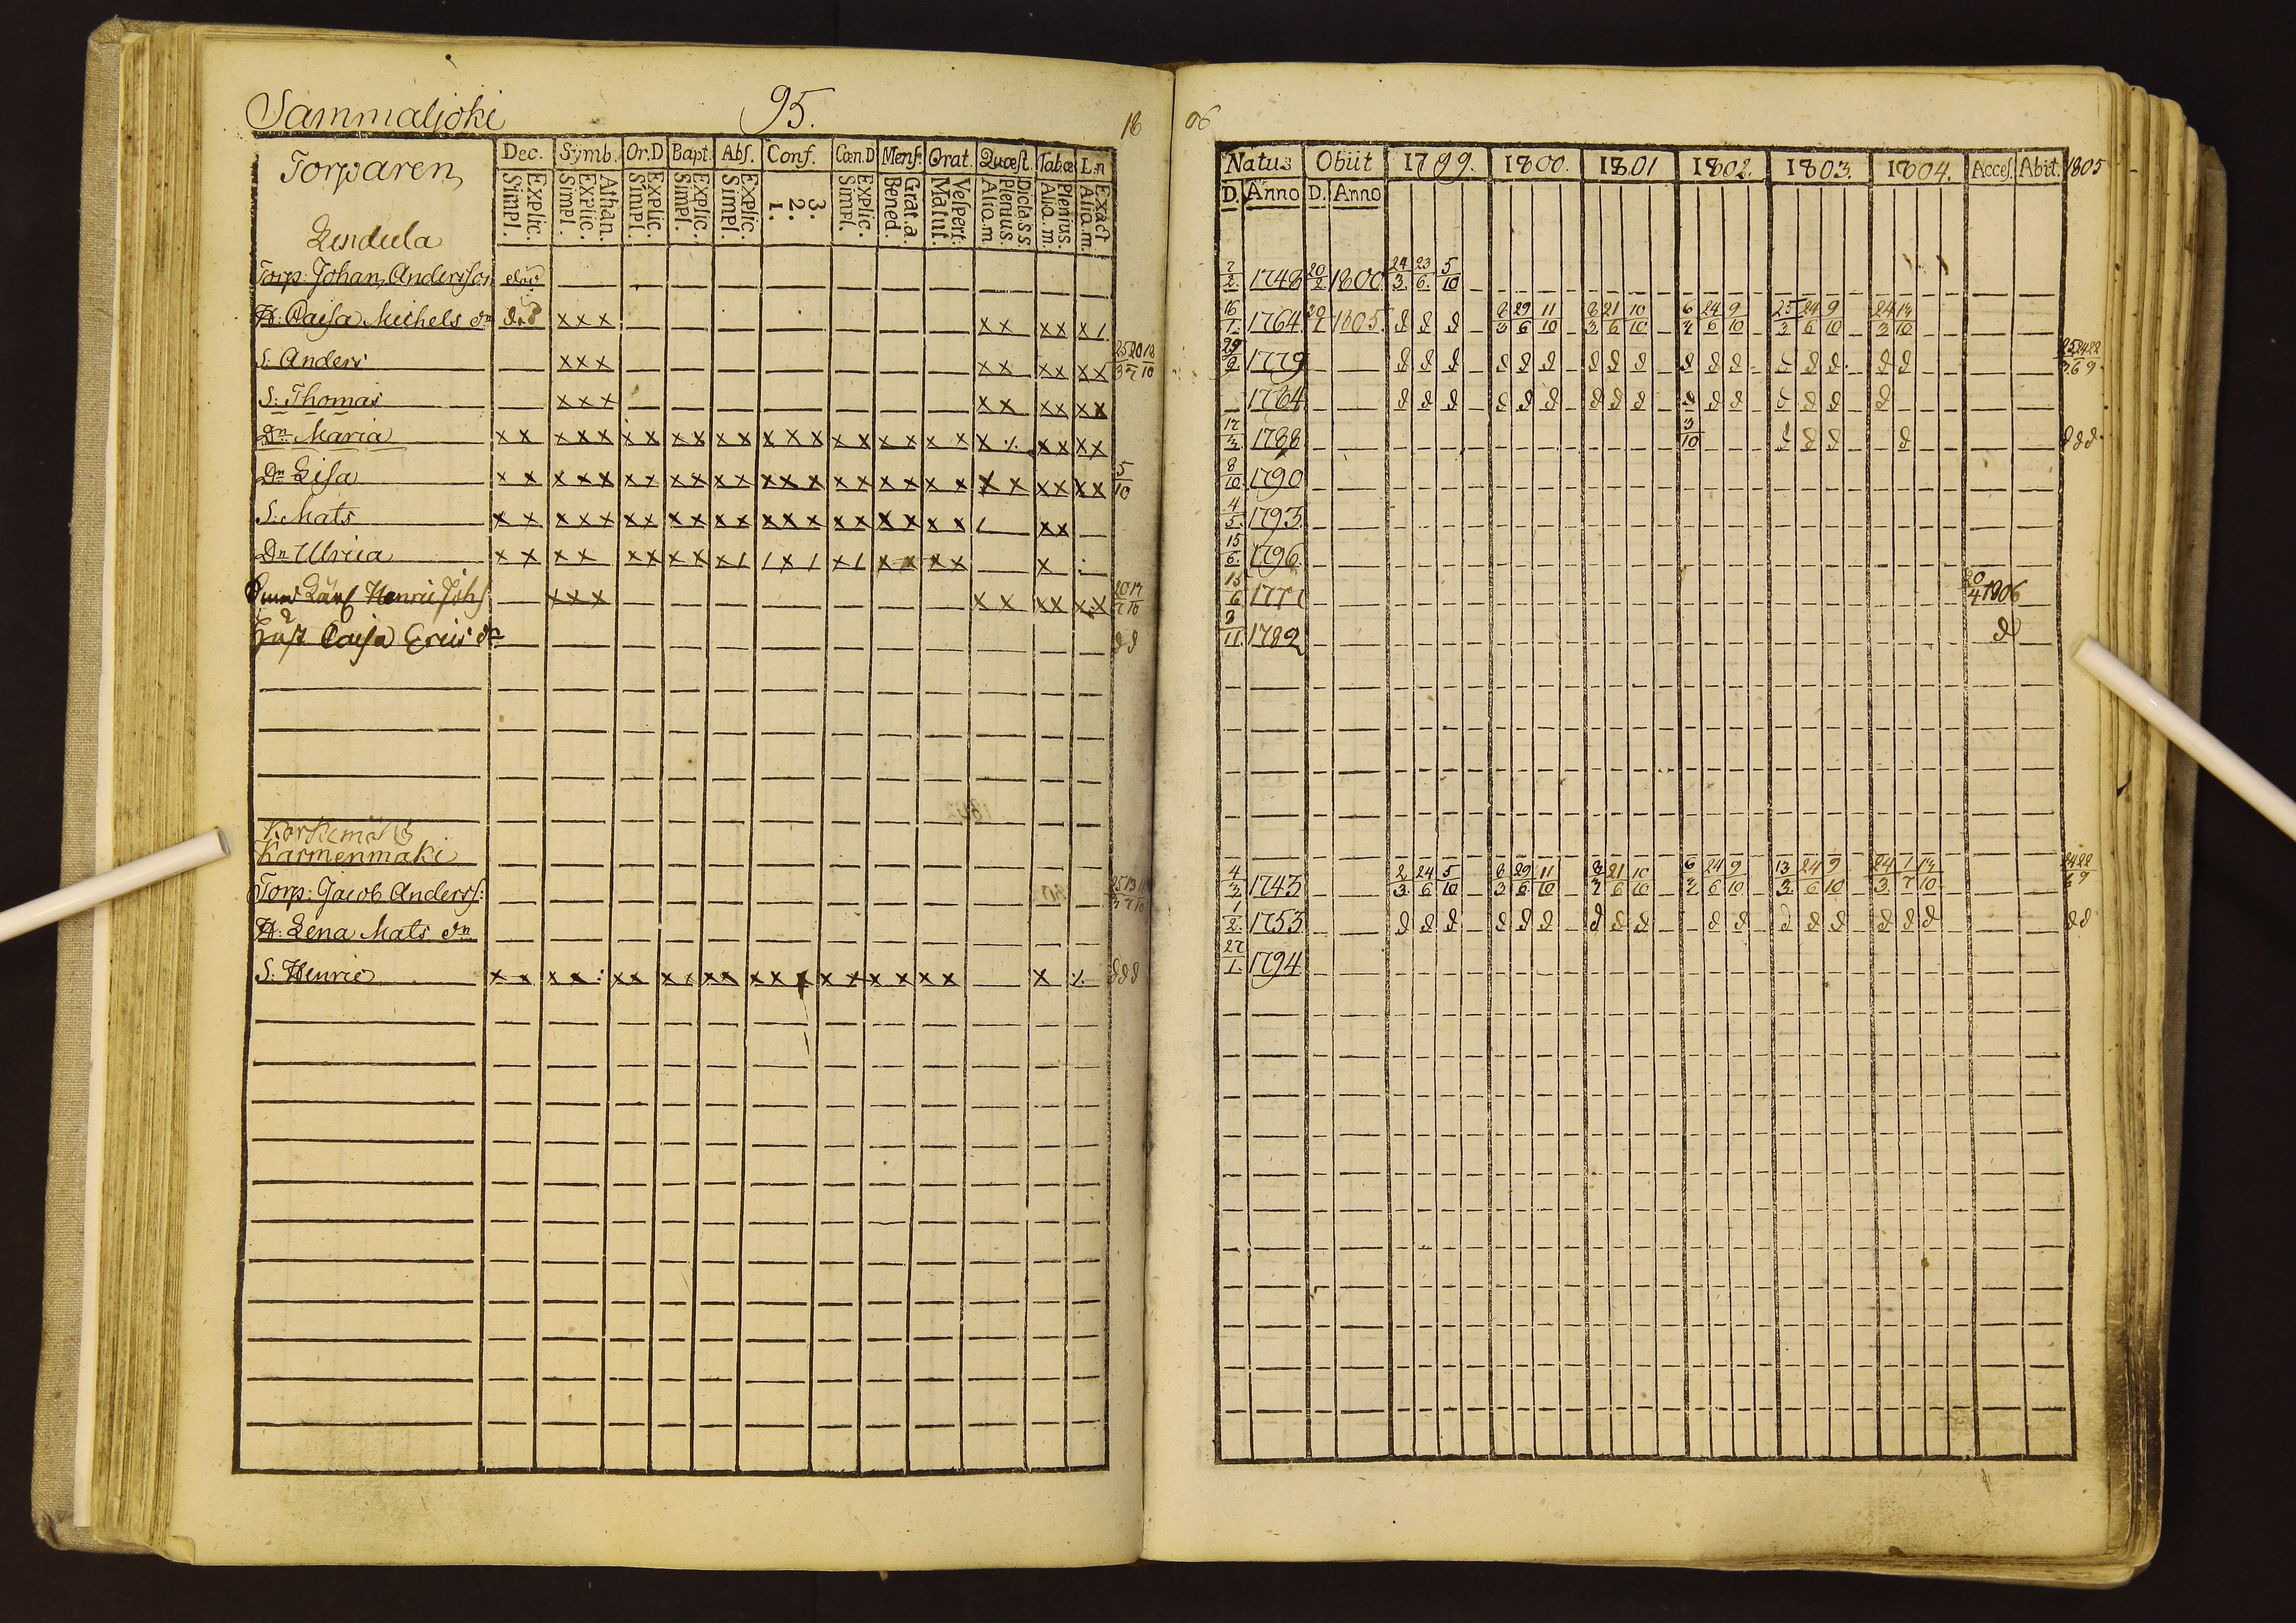 Sammaljoki 95. 18
Torparen
Lendula
Dec. Symb. Or.D Bapt. Abs. Conf. Cœn.D Mens. Orat. Quæst. Tabæ L:n
Explic. Simpl. Athan. Explic. Simpl. Explic. Simpl. Explic. Simpl. Explic. Simpl. 3. 2. 1. Explic. Simpl. Grat.a. Bened. Vespert. Matut. D:cla.s.s. Plenius. Aliq.m. Plenius. Aliq.m. Exact Aliq.m.
Torp: Johan Andersson
H. Caisa Michels dr x x x x x x x x /
S: Anders x x x x x x x x x 25 20 18 3 7 10
S: Thomas x x x x x x x x x
Dr Maria x x x x x x x x x x x x x x x x x x x x x x x ⁒ x x x x
Dr Lisa x x x x x x x x x x x x x x x x x x x x x x x x x x x x 5 10
S: Mats x x x x x x x x x x x x x x x x x x x x x x / x x
Dr Ulrica x x x x x x x x x / / x / x / x x x x x
Henric Johs x x x x x x x x x 20 17 7 10
Hust Caisa Erics dr d d
Karmenmäki
Torp: Jacob Anders:
H: Lena Mats dr
S: Henric x x x x : x x x x x x x x x x x x x x x x x ⁒ d d d
06
Natus Obiit 1799. 1800. 1801 1802. 1803. 1804. Acces. Abit. 1805
D. Anno D. Anno
2 1748 20 2 1800 24 3 23 6 5 10
16 1 1764 1805 d d d 8 3 29 6 11 10 8 3 21 6 10 10 6 24 6 9 10 25 3 24 6 9 10 24 3 14 10
29 9 1779 d d d d d d d d d d d d d d d d d
1764 d d d d d d d d d d d d d d d d
17 3 1788 3 10 d d d d d d d
8 10 1790
4 5 1793
15 6 1796
15 6 1777 20 4 1806
3 11 1782 d
4 3 1743 2 3 24 6 5 10 8 3 29 6 11 10 8 21 6 10 10 6 24 6 9 10 13 3 24 6 9 10 24 3 1 7 14 10 24 22 6 9
1 2 1753 d d d d d d d d d d d d d d d d d d d
27 1 1794